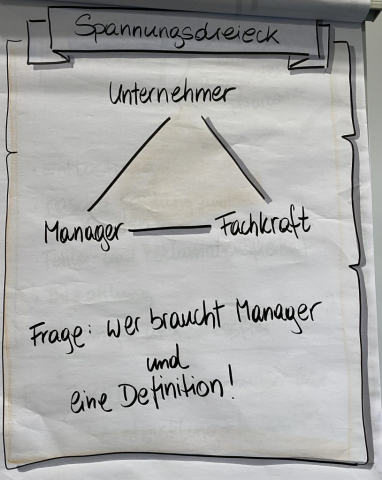 Spannungsdreieck
Unternehmer
Manager Fachkraft
Frage: wer braucht Manager
und
eine Definition!